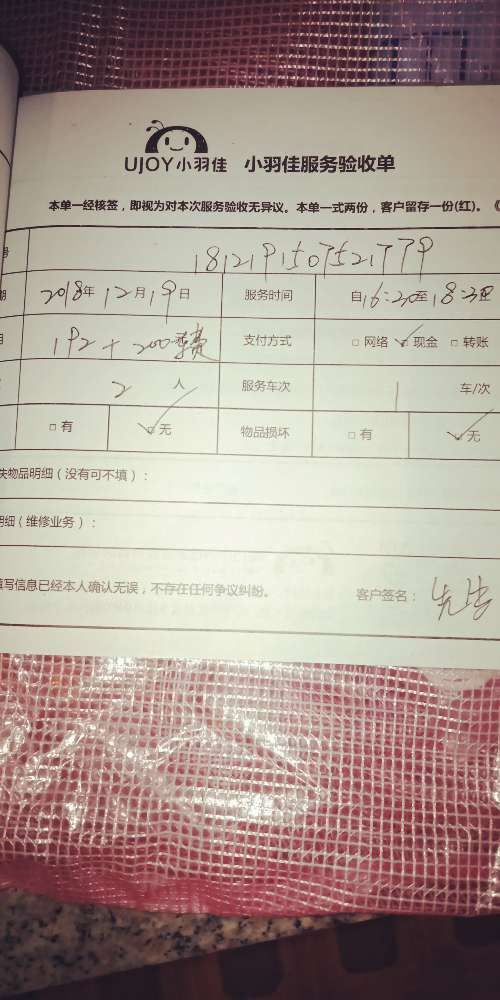 UJOY小羽佳 小羽佳服务验收单
本单一经核签，即视为对本次服务验收无异议。本单一式两份，客户留存一份(红)。《
号 1812191507521779
期 2018年12月19日 服务时间 自16:30至18:30
用 192+200 费 支付方式 □网络 ☑现金 □转账
2人 服务车次 1 车/次
□有 ☑无 物品损坏 □有 ☑无
失物品明细（没有可不填）：
明细（维修业务）：
填写信息已经本人确认无误，不存在任何争议纠纷。 客户签名：先生